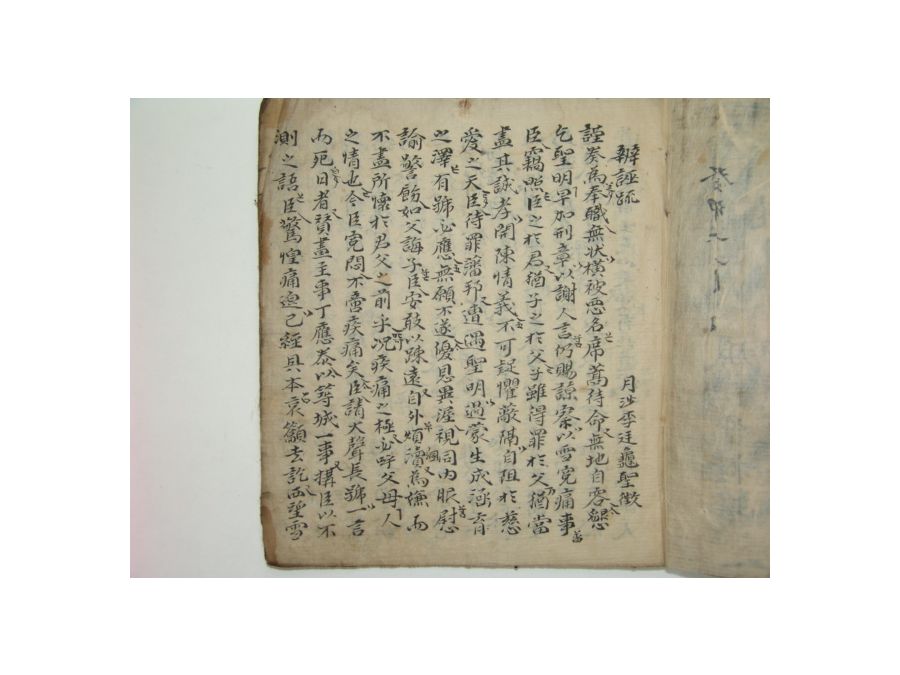 辨誣疏 月沙李廷龜聖徵
謹奏爲奉職無狀橫被惡名席藁待命無地自容懇
乞聖明早加刑章以謝人言仍賜諒察以雪寃痛事
臣竊照臣之於君猶子之於父子雖得罪於父猶當
盡其誠孝開陳情義不可疑懼蔽隔自阻於慈
愛之天臣待罪藩邦遭遇聖明過蒙生成涵育
之澤有號必應無願不遂優恩異渥視同內服慰
諭警飭如父誨子臣安敢以疎遠自外煩瀆爲嫌而
不盡所懷於君父之前乎况疾痛之極必呼父母人
之情也今臣寃悶不啻疾痛矣臣請大聲長號一言
而死日者贊畫主事丁應泰以築城一事搆臣以不
測之語臣驚惶痛迫已經具本哀籲去訖西望雪